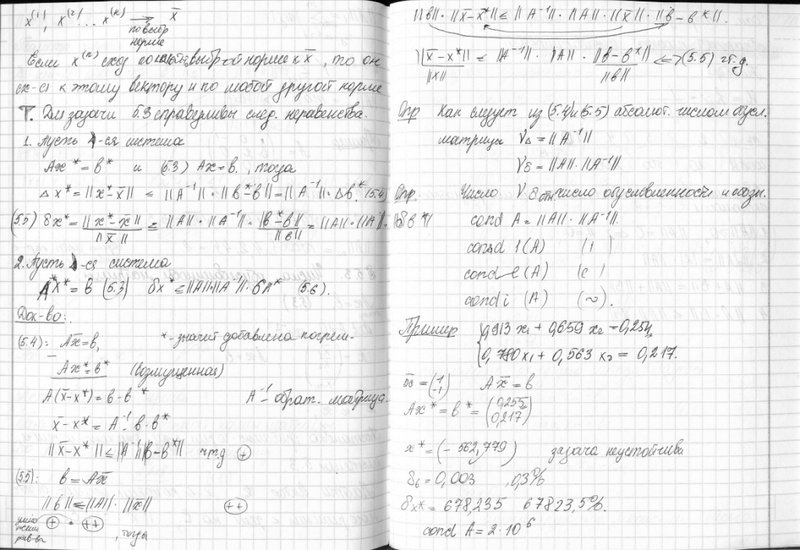 x⁽¹⁾, x⁽²⁾... x⁽ᵏ⁾ → x̄
по выбр норме
Если x⁽ᵏ⁾ сход по выбр ой норме к x̄, то он
сх-ся к этому вектору и по любой другой норме
Т. Для задачи 5.3 справедливы след. неравенства.
1. Пусть -ся система
Ax* = b* и (5.3) Ax = b, тогда
Δx* = ||x* - x̄|| ≤ ||A⁻¹|| · ||b* - b|| = ||A⁻¹|| · Δb* (5.4)
(5.5) δx* = ||x* - x|| / ||x̄|| ≤ ||A|| · ||A⁻¹|| · ||b* - b|| / ||b|| = ||A|| · ||A⁻¹|| · δb*
2. Пусть -ся система
A*x* = b (5.3) δx* ≤ ||A|| · ||A⁻¹|| · δA* (5.6).
Док-во:
(5.4): Ax̄ = b, * - значит добавлена погрем-
Ax* = b* (возмущенная)
A(x̄ - x*) = b - b* A⁻¹ - обрат. матрица.
x̄ - x* = A⁻¹ · b - b*
||x̄ - x*|| ≤ ||A⁻¹|| ||b - b*|| чтд (+)
(5.5): b = Ax̄
||b|| ≤ ||A|| · ||x̄|| (++)
(+) · (++) , тогда
||b|| · ||x̄ - x*|| ≤ ||A⁻¹|| · ||A|| · ||x̄|| · ||b - b*||
||x̄ - x*|| / ||x|| ≤ ||A⁻¹|| · ||A|| · ||b - b*|| / ||b|| <=> (5.5) чт.д.
Опр Как следует из (5.4) и (5.5) абсолют. числом обусл.
матрицы ν_Δ = ||A⁻¹||
ν_δ = ||A|| · ||A⁻¹||
Опр. Число ν_δ число обусловленности и обозн.
cond A = ||A|| · ||A⁻¹||
cond 1 (A) (1)
cond e (A) (e)
cond i (A) (∞).
Пример { 0,913 x₁ + 0,659 x₂ = 0,254
0,780 x₁ + 0,563 x₂ = 0,217.
x̄ = (1 -1) Ax̄ = b
Ax* = b* = (0,255 0,217)
x* = (-562,779) задача неустойчива
δb = 0,003 0,3%
δx* = 678,235 67823,5%.
cond A = 2·10⁶